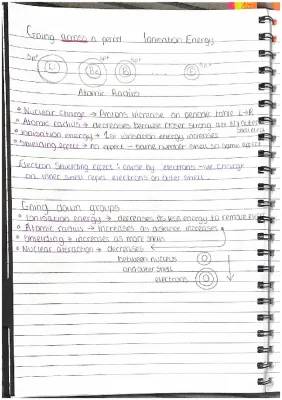 Going across a period Ionisation Energy
3p+ 4p+ 5p+ 9p+
Li Be B F
Atomic Radius
Nuclear Charge → Protons increase on periodic table L→R
Atomic radius → decreases because closer strong att b/w outer electrons
Ionisation energy → 1st ionisation energy increases
Shielding effect → no effect - same number shell so same effect
Electron Shielding effect: cause by electrons -ive charge
on inner shell repel electrons on outer shell.
Going down groups
Ionisation energy → decreases as less energy to remove
Atomic radius → increases as distance increases
Shielding → increases as more shells
Nuclear attraction → decreases
between nucleus
and outer shell
electrons